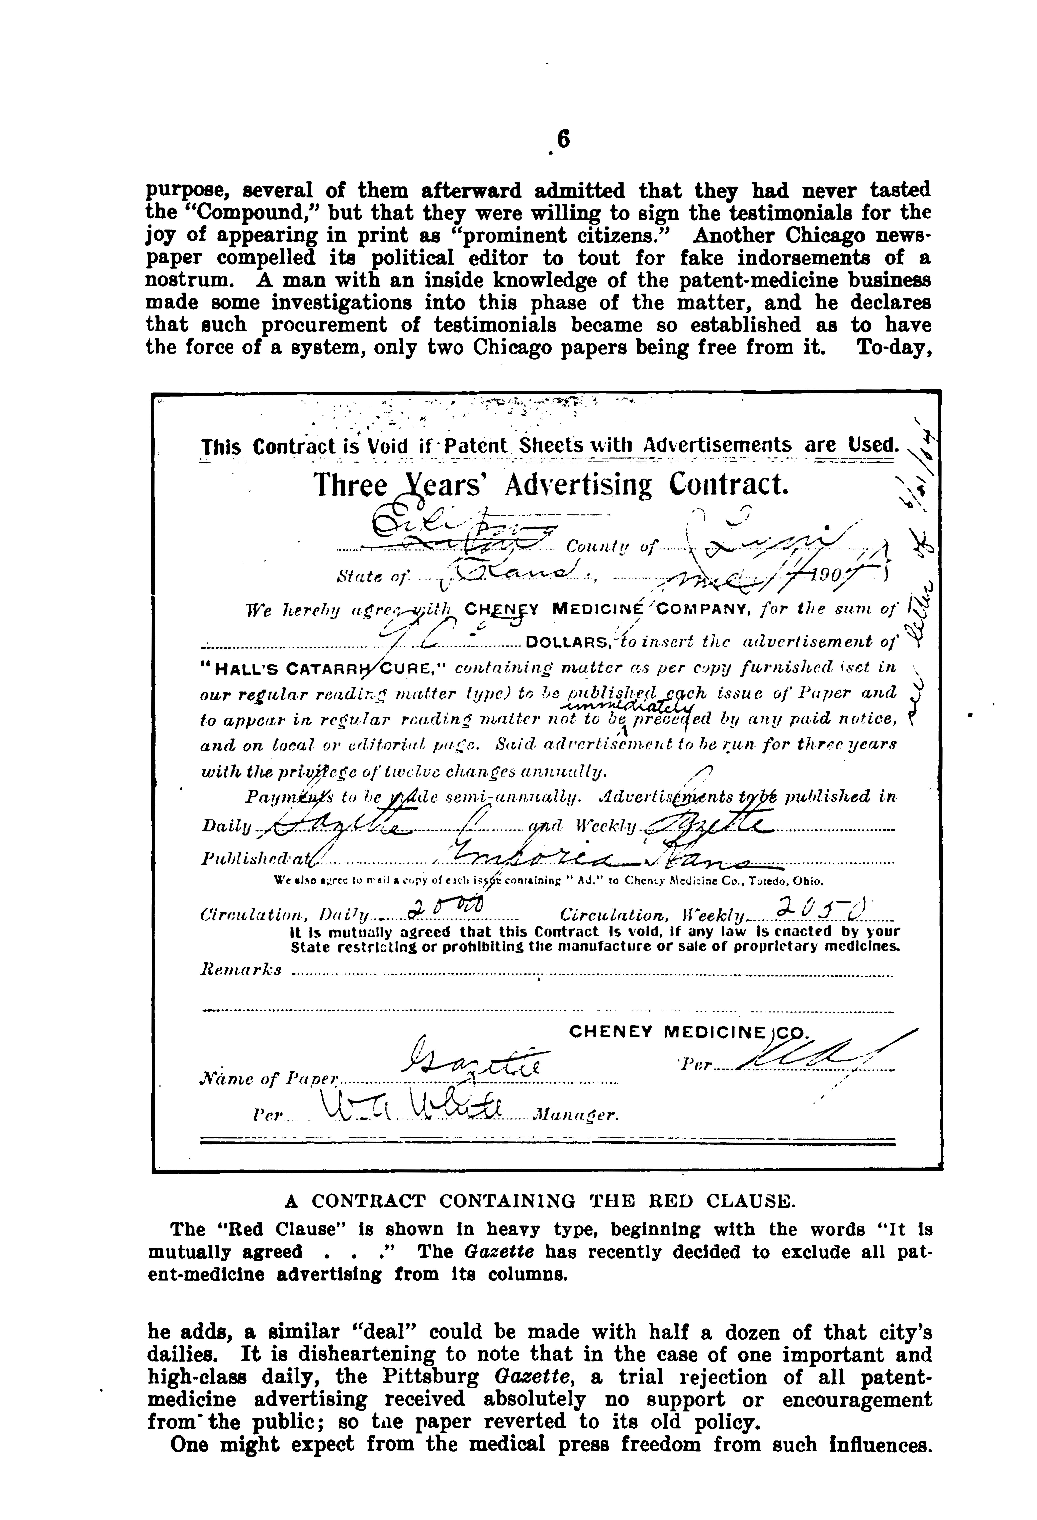 6
purpose, several of them afterward admitted that they had never tasted
the "Compound," but that they were willing to sign the testimonials for the
joy of appearing in print as "prominent citizens." Another Chicago news-
paper compelled its political editor to tout for fake indorsements of a
nostrum. A man with an inside knowledge of the patent-medicine business
made some investigations into this phase of the matter, and he declares
that such procurement of testimonials became so established as to have
the force of a system, only two Chicago papers being free from it. To-day,
This Contract is Void if Patent Sheets with Advertisements are Used.
Three Years' Advertising Contract.
County of
State of Kans, 1907
We hereby agree with CHENEY MEDICINE COMPANY, for the sum of
DOLLARS, to insert the advertisement of
"HALL'S CATARRH CURE," containing matter as per copy furnished (set in
our regular reading matter type) to be published each issue of Paper and
immediately
to appear in regular reading matter not to be preceded by any paid notice,
and on local or editorial page. Said advertisement to be run for three years
with the privilege of twelve changes annually.
Payments to be made semi-annually. Advertisements to be published in
Daily Gazette and Weekly Gazette
Published at Emporia Kans
We also agree to mail a copy of each issue containing "Ad." to Cheney Medicine Co., Toledo, Ohio.
Circulation, Daily 2000 Circulation, Weekly 2050
It is mutually agreed that this Contract is void, if any law is enacted by your
State restricting or prohibiting the manufacture or sale of proprietary medicines.
Remarks
CHENEY MEDICINE CO.
Per
Name of Paper Gazette
Per W A White Manager.
see letter of
A CONTRACT CONTAINING THE RED CLAUSE.
The "Red Clause" is shown in heavy type, beginning with the words "It is
mutually agreed . . ." The Gazette has recently decided to exclude all pat-
ent-medicine advertising from its columns.
he adds, a similar "deal" could be made with half a dozen of that city's
dailies. It is disheartening to note that in the case of one important and
high-class daily, the Pittsburg Gazette, a trial rejection of all patent-
medicine advertising received absolutely no support or encouragement
from the public; so the paper reverted to its old policy.
One might expect from the medical press freedom from such influences.